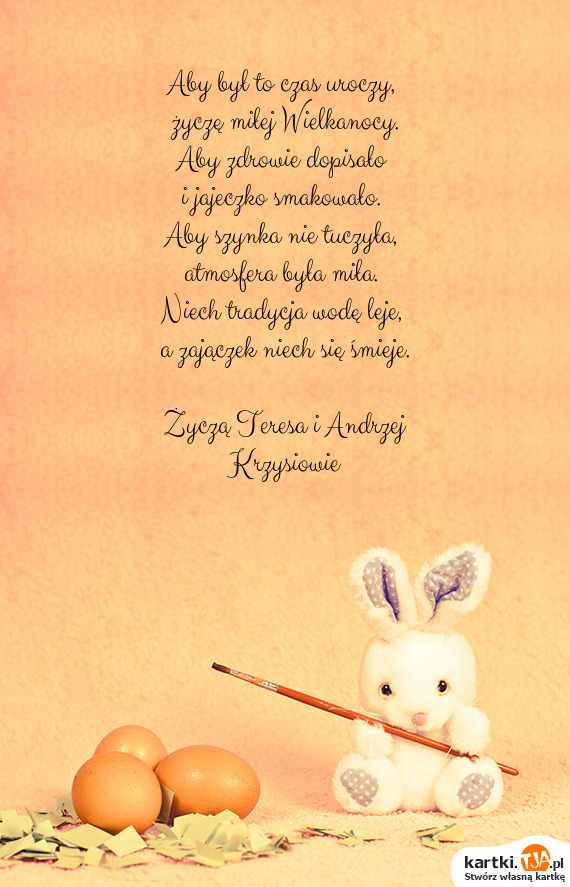 Aby był to czas uroczy,
życzę miłej Wielkanocy.
Aby zdrowie dopisało
i jajeczko smakowało.
Aby szynka nie tuczyła,
atmosfera była miła.
Niech tradycja wodę leje,
a zajączek niech się śmieje.
Życzą Teresa i Andrzej
Krzysiowie
kartki.TJA.pl
Stwórz własną kartkę